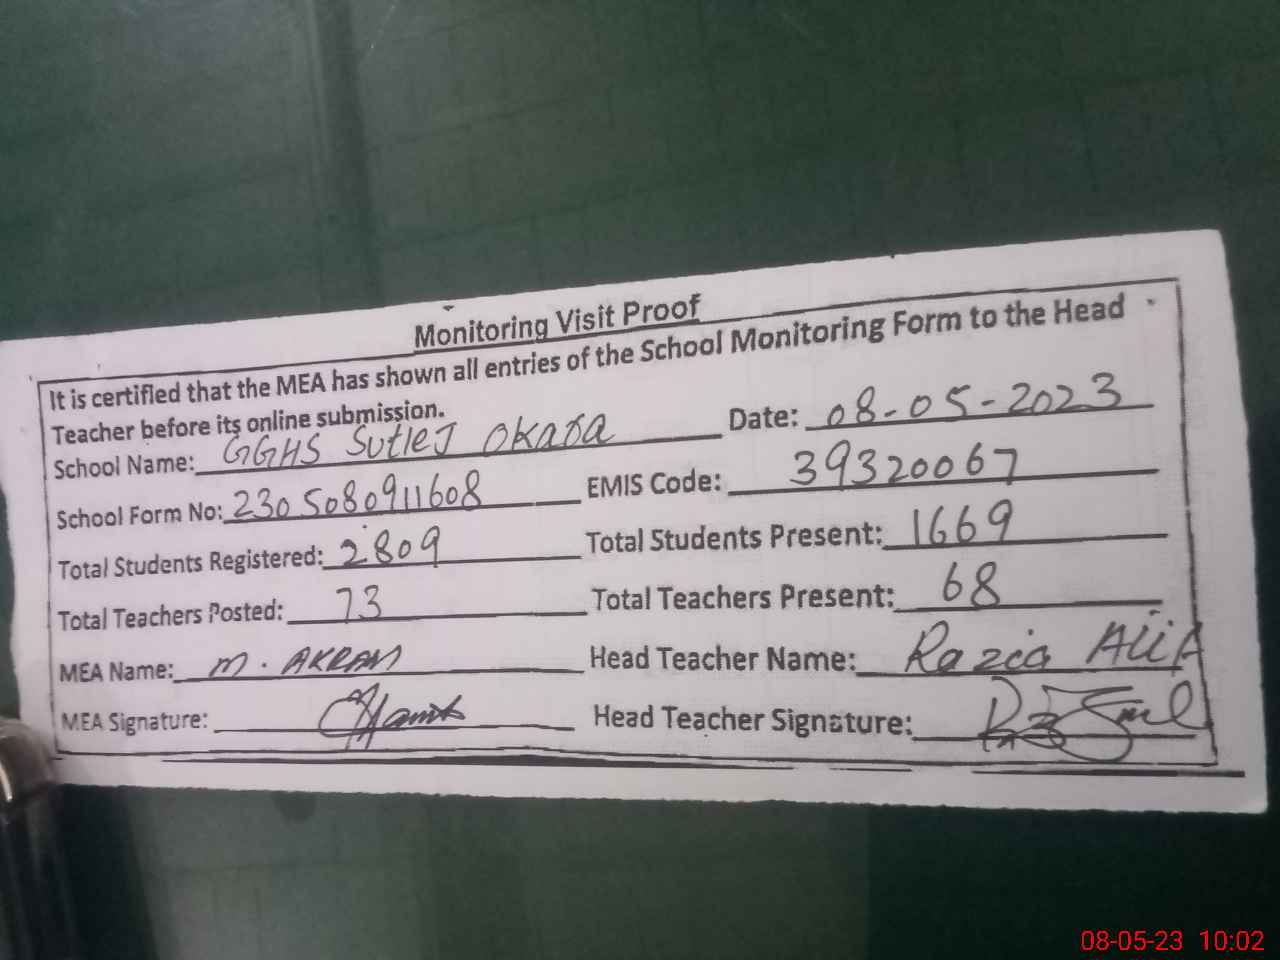 Monitoring Visit Proof
It is certified that the MEA has shown all entries of the School Monitoring Form to the Head
Teacher before its online submission.
School Name: GGHS Sutlej Okara Date: 08-05-2023
School Form No: 2305080911608 EMIS Code: 39320067
Total Students Registered: 2809 Total Students Present: 1669
Total Teachers Posted: 73 Total Teachers Present: 68
MEA Name: M. AKRAM Head Teacher Name: Razia
MEA Signature: Head Teacher Signature:
08-05-23 10:02